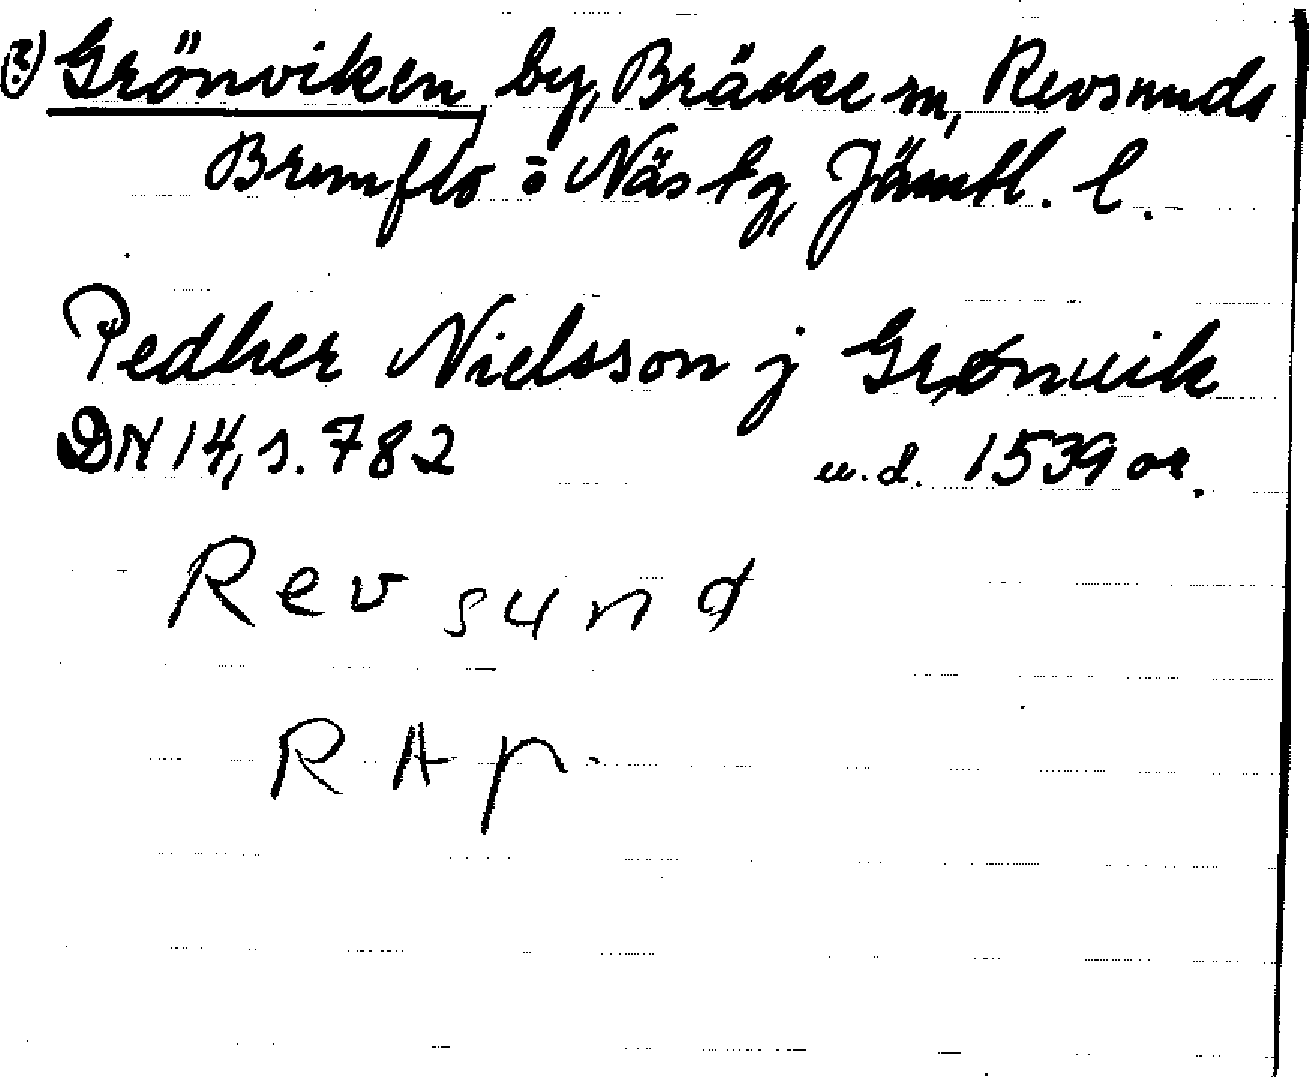 ?) Grönviken by, Bräcke sn, Revsunds
Brunflo o Näs tg, Jämtl. l.
Pedher Nielsson j Grønuik
DN 14, s. 782 u.d. 1539 or.
Revsund
RAp